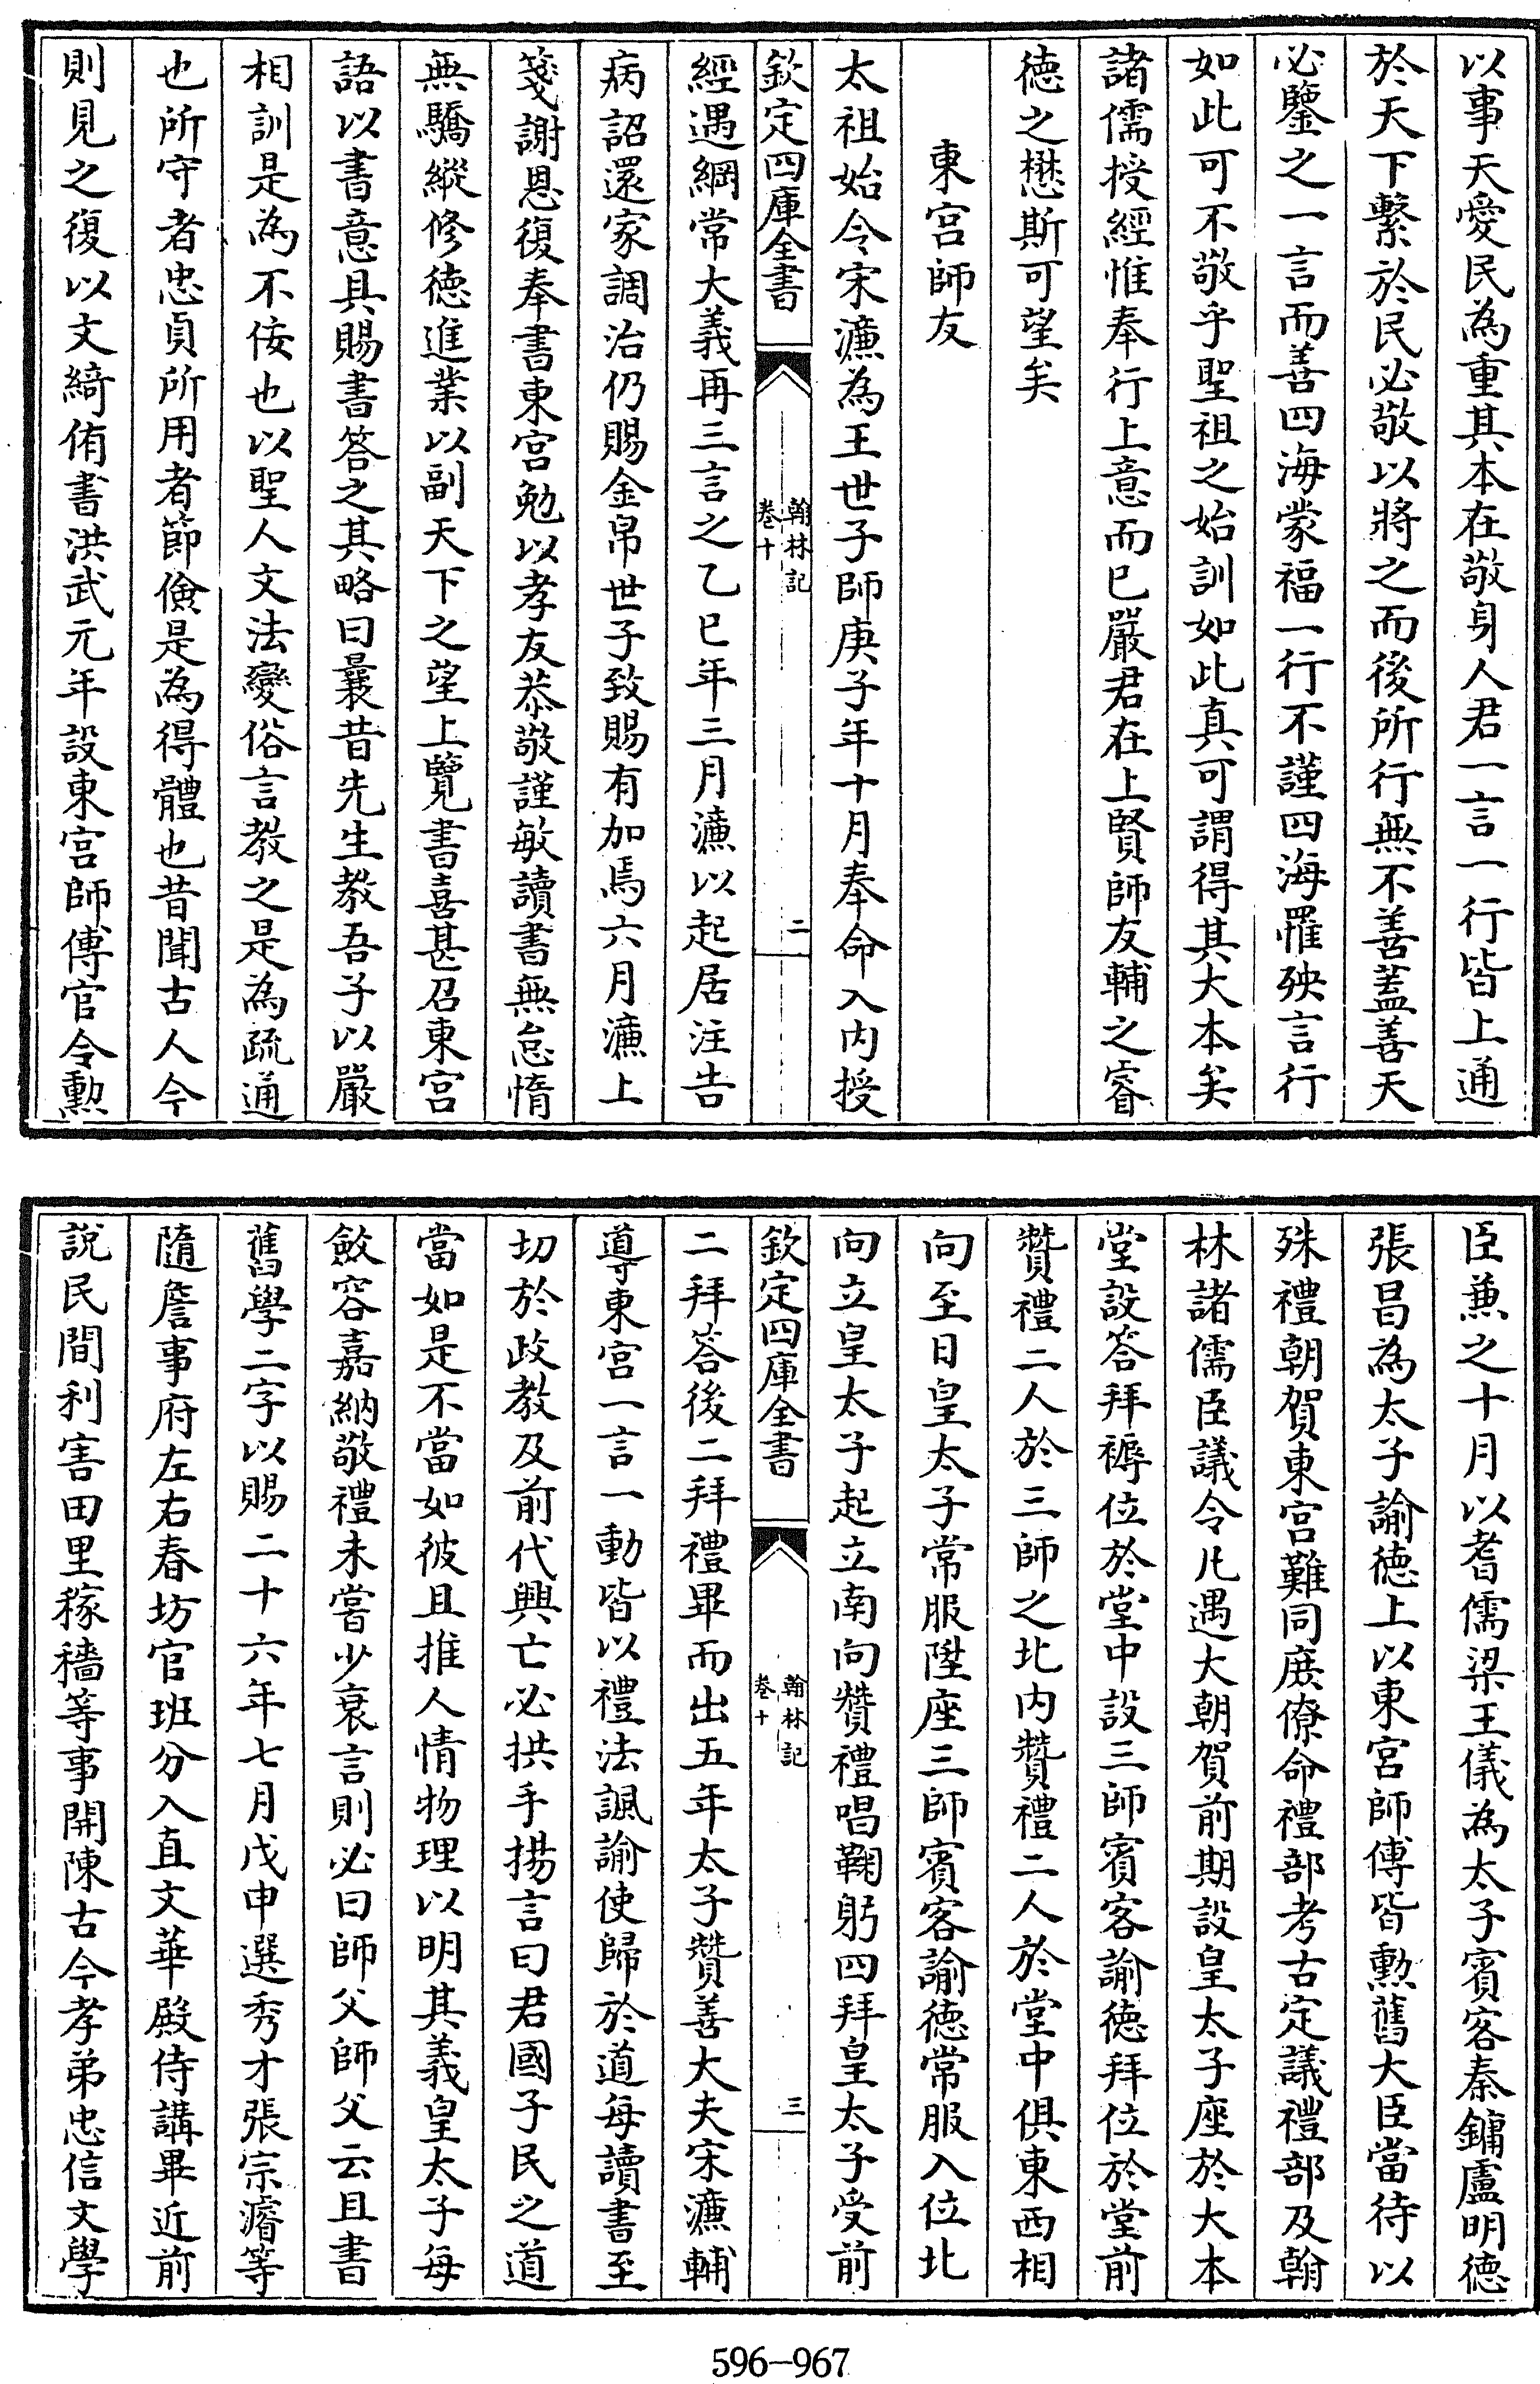 以事天愛民為重其本在敬身人君一言一行皆上通
於天下繫於民必敬以將之而後所行無不善蓋善天
必鑒之一言而善四海蒙福一行不謹四海罹殃言行
如此可不敬乎聖祖之始訓如此真可謂得其大本矣
諸儒授經惟奉行上意而已嚴君在上賢師友輔之睿
徳之懋斯可望矣
東宮師友
太祖始令宋濂為王世子師庚子年十月奉命入内授
欽定四庫全書
翰林記
卷十
二
經遇綱常大義再三言之乙巳年三月濂以起居注告
病詔還家調治仍賜金帛世子致賜有加焉六月濂上
箋謝恩復奉書東宮勉以孝友恭敬謹敏讀書無怠惰
無驕縱修徳進業以副天下之望上覽書喜甚召東宮
語以書意具賜書答之其略曰曩昔先生教吾子以嚴
相訓是為不佞也以聖人文法變俗言教之是為疏通
也所守者忠貞所用者節儉是為得體也昔聞古人今
則見之復以文綺侑書洪武元年設東宮師傅官令勲
臣兼之十月以耆儒梁王儀為太子賓客秦鏞盧明德
張昌為太子諭徳上以東宮師傅皆勲舊大臣當待以
殊禮朝賀東宮難同庶僚命禮部考古定議禮部及翰
林諸儒臣議令凡遇大朝賀前期設皇太子座於大本
堂設答拜褥位於堂中設三師賓客諭徳拜位於堂前
贊禮二人於三師之北内贊禮二人於堂中俱東西相
向至日皇太子常服陞座三師賓客諭徳常服入位北
向立皇太子起立南向贊禮唱鞠躬四拜皇太子受前
欽定四庫全書
翰林記
卷十
三
二拜答後二拜禮畢而出五年太子贊善大夫宋濂輔
導東宮一言一動皆以禮法諷諭使歸於道每讀書至
切於政教及前代興亡必拱手揚言曰君國子民之道
當如是不當如彼且推人情物理以明其義皇太子每
斂容嘉納敬禮未嘗少衰言則必曰師父師父云且書
舊學二字以賜二十六年七月戊申選秀才張宗濬等
隨詹事府左右春坊官班分入直文華殿侍講畢近前
說民間利害田里稼穡等事開陳古今孝弟忠信文學
596-967